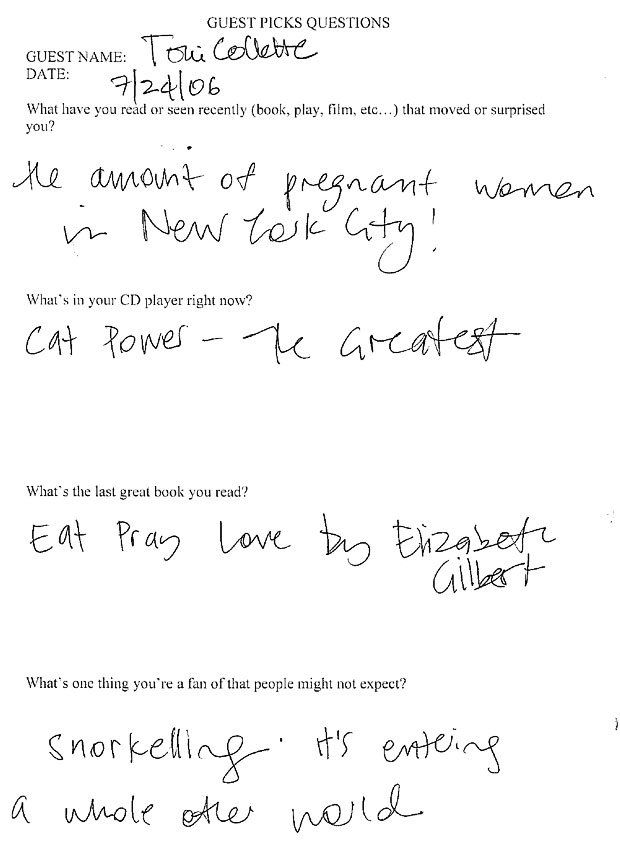 GUEST PICKS QUESTIONS
GUEST NAME: Toni Collette
DATE: 7/24/06
What have you read or seen recently (book, play, film, etc...) that moved or surprised
you?
the amount of pregnant women
in New York City!
What's in your CD player right now?
Cat Power – The Greatest
What's the last great book you read?
Eat Pray Love by Elizabeth
Gilbert
What's one thing you're a fan of that people might not expect?
snorkelling. it's entering
a whole other world